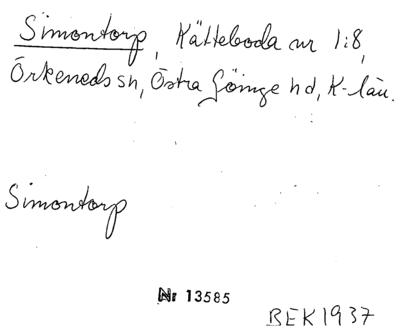 Simontorp, Kätteboda nr 1:8,
Örkeneds sn, Östra Göinge hd, K-län.
Simontorp
Nr 13585
BEK1937